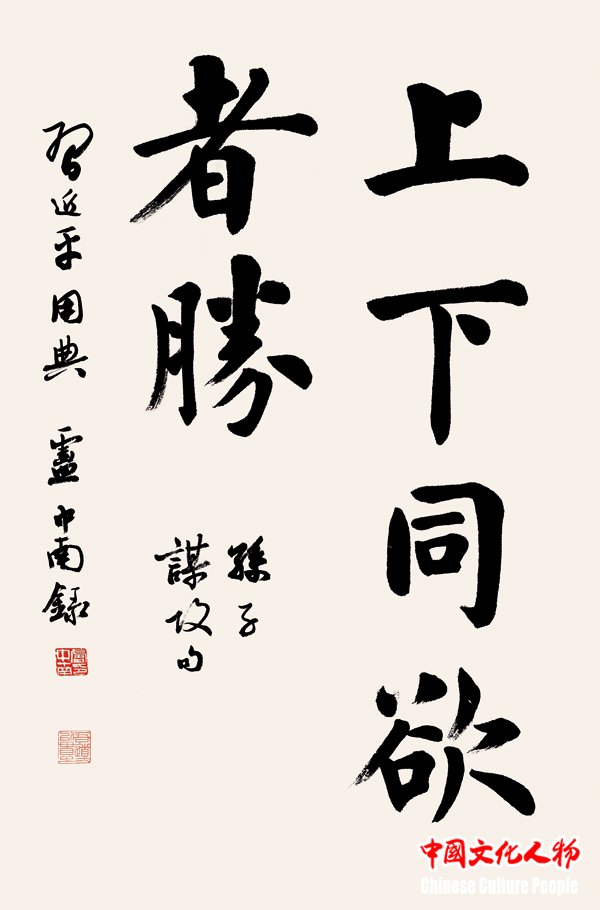 上下同欲
者勝
孫子
謀攻句
習近平用典　盧中南錄
盧中南
中國文化人物
Chinese Culture People